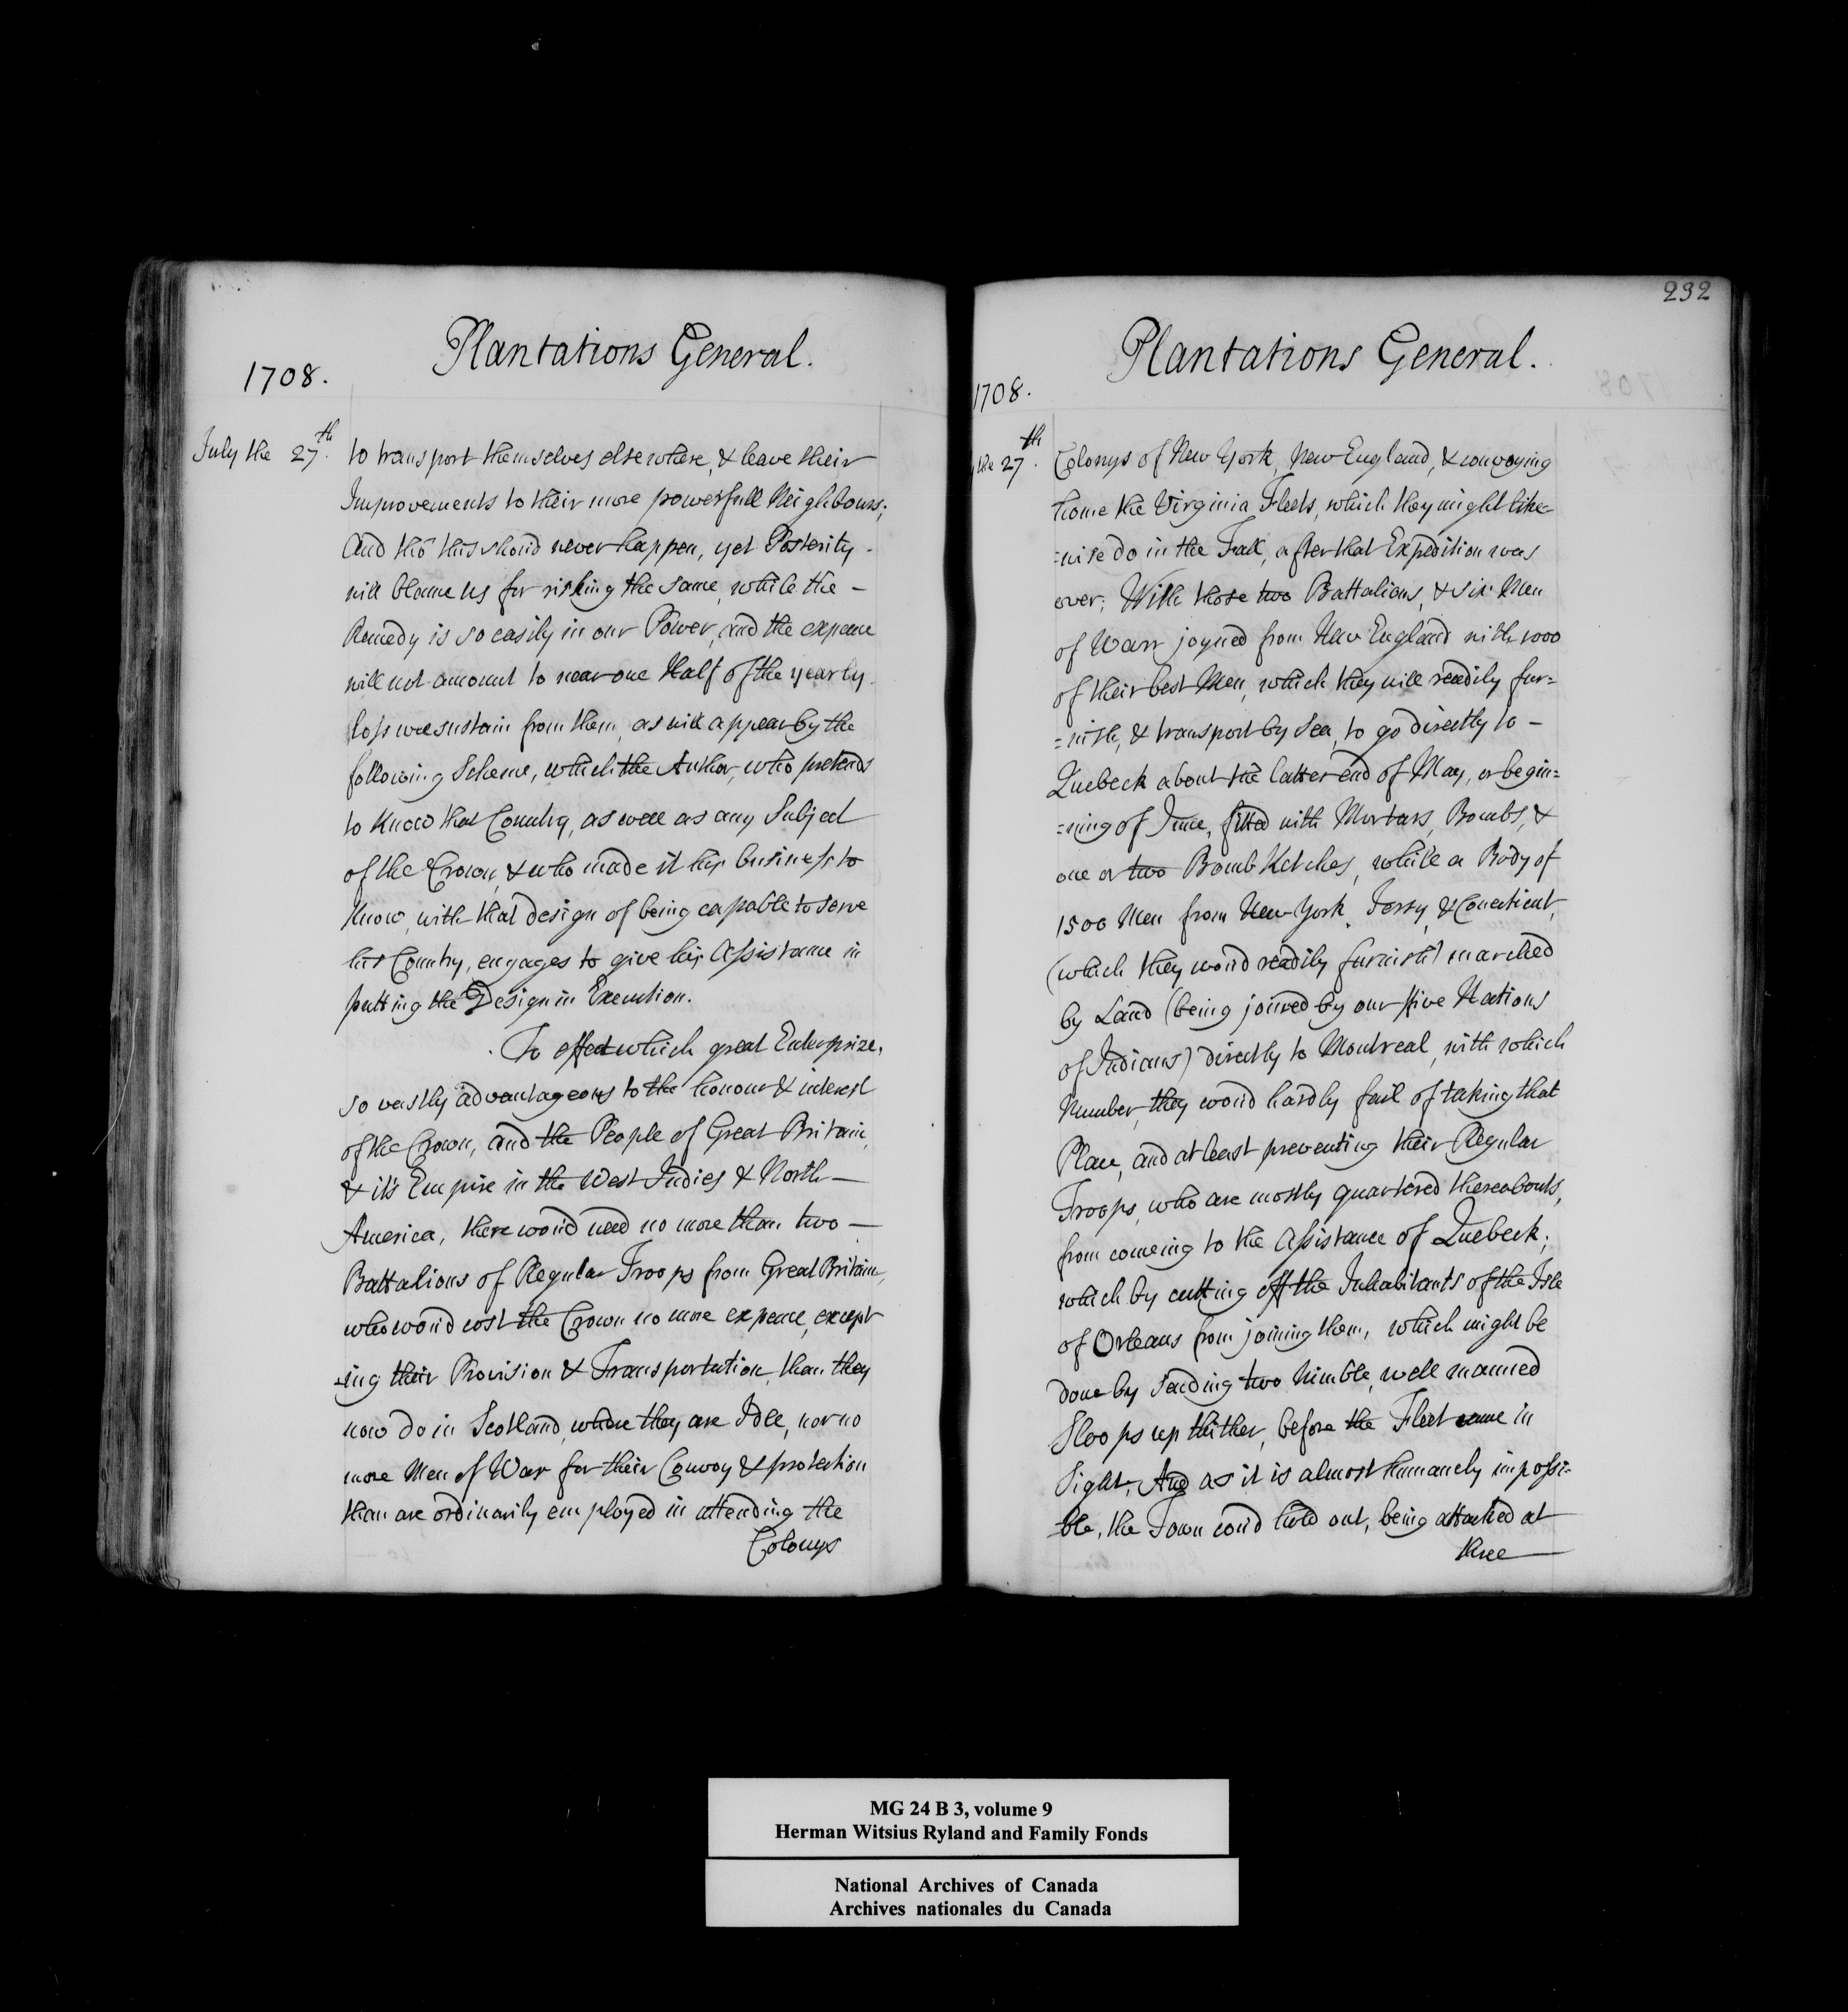 Plantations General.
1708.
July the 27th.
to transport themselves elsewhere, & leave their
Improvements to their more powerfull Neighbours;
And thō this shoūd never happen, yet Posterity
will blame us for risking the same, while the –
Remedy is so easily in our Power, and the expence
will not amount to near one Half of the yearly
loss wee sustain from them, as will appear by the
following Scheme, which the Author, who pretends
to know that Country, as well as any Subject
of the Crown, & who made it his business to
know, with that design of being capable to serve
his Country, engages to give his Assistance in
putting the Design in Execution.
To effect which great Enterprize,
so vastly advantageous to the honour & interest
of the Crown, and the People of Great Britain,
& it's Empire in the West Indies & North –
America, there woūd need no more than two –
Battalions of Regular Troops from Great Britain,
who woūd cost the Crown no more expence, except
-ing their Provision & Transportation, than they
now do in Scotland, where they are Idle, nor no
more Men of War for their Convoy & protection
than are ordinarily employed in attending the
Colonys
232
Plantations General.
1708.
the 27th.
Colonys of New York, New England, & convoying
home the Virginia Fleets, which they might like-
=wise do in the Fall, after that Expedition was
over; With those two Battalions, & six Men
of Warr joyned from New England with 1000
of their best Men, which they will readily fur=
=nish, & transport by Sea, to go directly to –
Quebeck about the latter end of May, or begin=
=ning of June, fitted with Mortars, Bombs, &
one or two Bomb Ketches, while a Body of
1500 Men from New York, Jersy, & Conecticut,
(which they woūd readily furnish) marched
by Land (being joined by our five Nations
of Indians) directly to Montreal, with which
Number, they woud hardly fail of taking that
Place, and at least preventing their Regular
Troops, who are mostly quartered thereabouts,
from comeing to the Assistance of Quebeck;
which by cutting off the Inhabitants of the Isle
of Orleans from joining them, which might be
done by sending two Nimble, well manned
Sloops up thither, before the Fleet came in
Sight; And as it is almost humanely impossi-
ble, the Town coūd hold out, being attacked at
three
MG 24 B 3, volume 9
Herman Witsius Ryland and Family Fonds
National Archives of Canada
Archives nationales du Canada